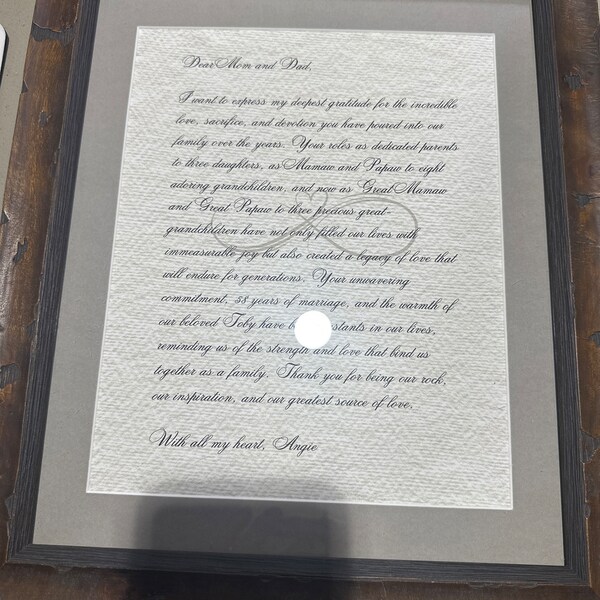 Dear Mom and Dad,
I want to express my deepest gratitude for the incredible
love, sacrifice, and devotion you have poured into our
family over the years. Your roles as dedicated parents
to three daughters, as Mamaw and Papaw to eight
adoring grandchildren, and now as Great Mamaw
and Great Papaw to three precious great-
grandchildren have not only filled our lives with
immeasurable joy but also created a legacy of love that
will endure for generations. Your unwavering
commitment, 58 years of marriage, and the warmth of
our beloved Toby have in our lives,
reminding us of the strength and love that bind us
together as a family. Thank you for being our rock,
our inspiration, and our greatest source of love.
With all my heart, Angie